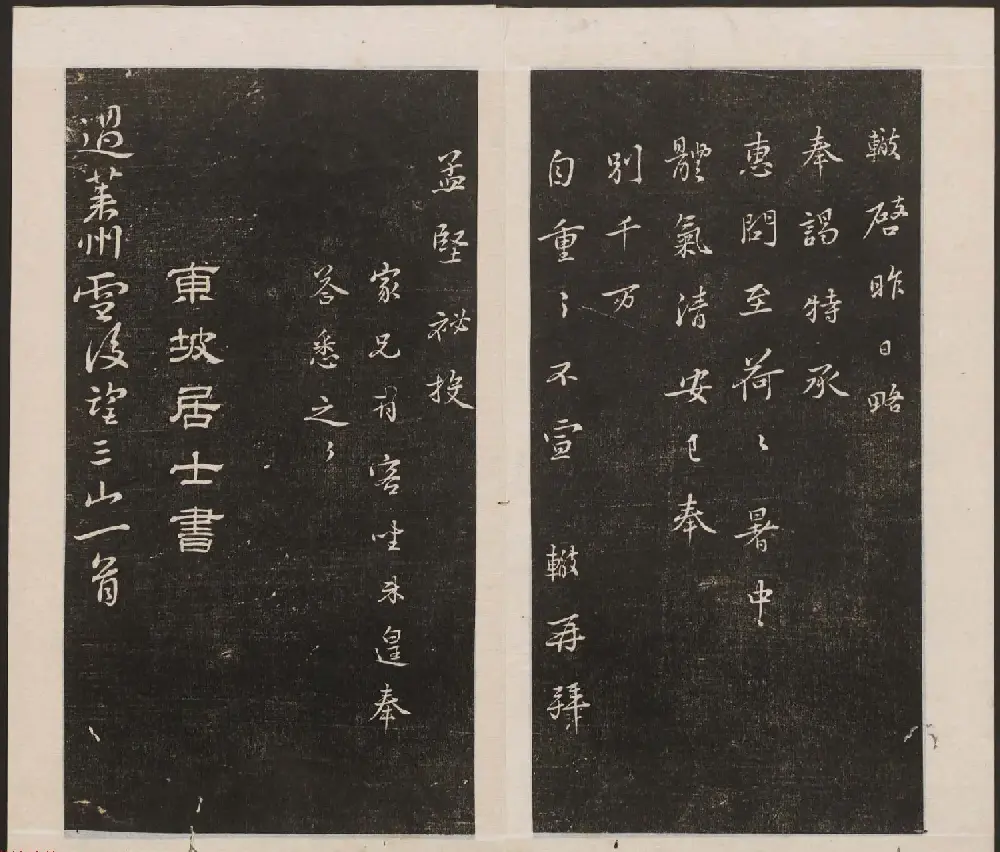 轍啓昨日略
奉謁特承
惠問至荷〻暑中
體氣清安已奉
別千万
自重〻不宣 轍再拜
孟堅祕校
家兄有客坐未遑奉
答悉之〻
東坡居士書
過萊州雪後望三山一首